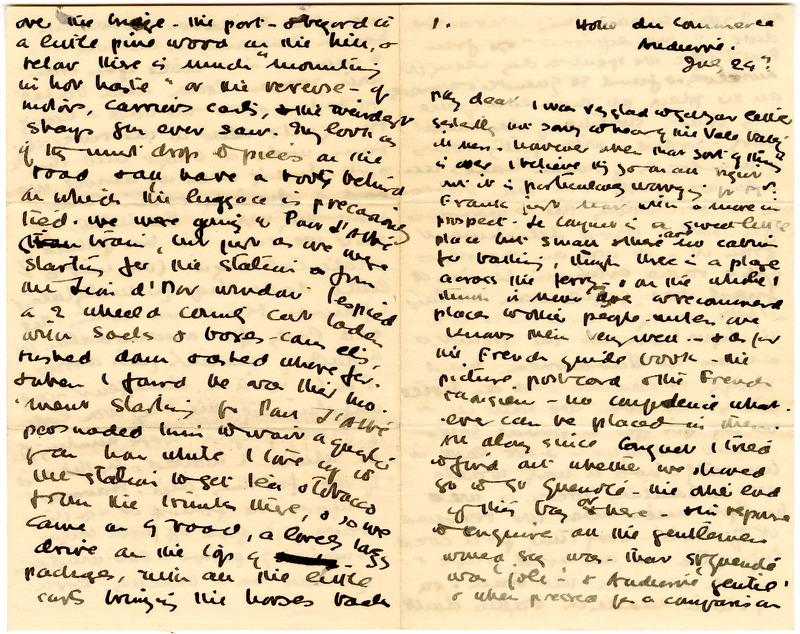 over the bridge - the port - & regard it
a little pine wood on the hill, &
below there is much "mounting
in hot haste" or the reverse - of
motors, carriers carts, & the weirdest
shays you ever saw. They look as
if they must drop to pieces on the
road & all have a sort behind
on which the luggage is precariously
tied. We were going to Pont l'Abbé
train, but just as we were
starting for the station & from
the Lion d'Or window I espied
a 2 wheeled country cart laden
with sacks & boxes - come by,
rushed down & asked where for.
& when I found he was this mo-
ment starting for Pont l'Abbé
persuaded him to wait a quarter
of an hour while I tore up to
the station to get tea & tobacco
from the trunks there, & so we
came on by road, a lovely
drive on the top of
packages, with all the little
carts bringing the horses back
1. Hotel du Commerce
Audierne.
29th
My dear. I was very glad to get your letter
yesterday but sorry to hear of the
illness. However when that sort of thing
is over I believe it's so in all right
but it is particularly worrying for
Frank just now with a move in
prospect. Le Conquet is a sweet little
place but small & there are no cabins
for bathing, though there is a place
across the ferry, & on the whole I
think it never does to recommend
places to other people - unless one
knows them very well - & as for
the French guide book - the
picture postcard & the French
- no confidence what-
ever can be placed in them.
All along since Conquet I tried
to find out whether we should
go to St Guénolé - the other end
of this bay or there - & the response
to enquire all the gentlemen
would say was - that St Guénolé
was 'joli' - & Audierne 'gentil'
& when pressed for a comparison